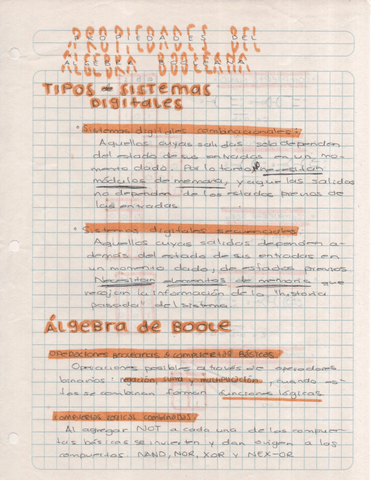 PROPIEDADES DEL
ÁLGEBRA BOOLEANA
TIPOS de SISTEMAS
DIGITALES
• Sistemas digitales combinacionales:
Aquellos cuyas salidas solo dependen
del estado de sus entradas en un mo-
mento dado. Por lo tanto
módulos de memoria, ya que las salidas
no dependen de los estados previos de
las entradas
• Sistemas digitales secuenciales
Aquellos cuyas salidas dependen a-
demás del estado de sus entradas en
un momento dado, de estados previos.
Necesitan elementos de memoria que
recojan la información de la "historia
pasada" del sistema.
ÁLGEBRA de BOOLE
Operaciones
BÁSICAS
Operaciones posibles a través de operadores
binarios: negación, suma y multiplicación, cuando es-
tas se combinan forman funciones lógicas
Compuertas lógicas combinadas
Al agregar NOT a cada una de las compuer-
tas básicas se invierten y dan origen a las
compuertas: NAND, NOR, XOR y NEX-OR